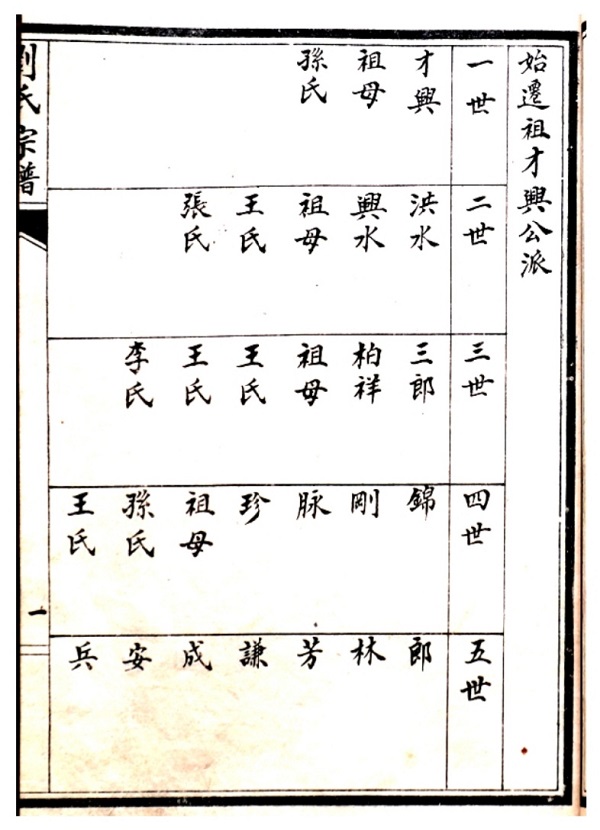 始遷祖才興公派
一世
才興
祖母
孫氏
二世
洪水
興水
祖母
王氏
張氏
三世
三郎
柏祥
祖母
王氏
王氏
李氏
四世
錦
剛
脉
珍
祖母
孫氏
王氏
五世
郎
林
芳
謙
成
安
兵
劉氏宗譜
一